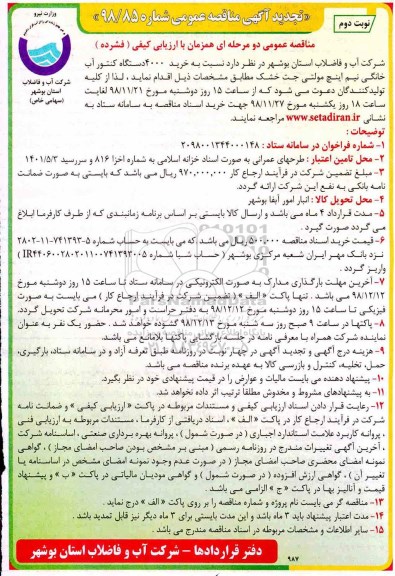 نوبت دوم
«تجدید آگهی مناقصه عمومی شماره ۹۸/۸۵»
وزارت نیرو
شرکت آب و فاضلاب
استان بوشهر
(سهامی خاص)
مناقصه عمومی دو مرحله ای همزمان با ارزیابی کیفی ( فشرده )
شرکت آب و فاضلاب استان بوشهر در نظر دارد نسبت به خرید ۴۰۰۰دستگاه کنتور آب
خانگی نیم اینچ مولتی جت خشک مطابق مشخصات ذیل اقدام نماید ، لذا از کلیه
تولیدکنندگان دعوت می شود که از ساعت ۱۵ روز دوشنبه مورخ ۹۸/۱۱/۲۱ لغایت
ساعت ۱۸ روز یکشنبه مورخ ۹۸/۱۱/۲۷ جهت خرید اسناد مناقصه به سامانه ستاد به
نشانی www.setadiran.ir مراجعه نمایند.
توضیحات :
۱- شماره فراخوان در سامانه ستاد : ۲۰۹۸۰۰۱۲۴۴۰۰۰۱۴۸
۲- محل تامین اعتبار : طرحهای عمرانی به صورت اسناد خزانه اسلامی به شماره اخزا ۸۱۶ و سررسید ۱۴۰۱/۵/۳
۳- مبلغ تضمین شرکت در فرآیند ارجاع کار ۹۷۰,۰۰۰,۰۰۰ ریال می باشد که بایستی به صورت ضمانت
نامه بانکی به نفع این شرکت ارائه گردد.
۴- محل تحویل کالا : انبار امور آبفا بوشهر
۵- مدت قرارداد ۴ ماه می باشد و ارسال کالا بایستی بر اساس برنامه زمانبندی که از طرف کارفرما ابلاغ
می گردد صورت گیرد .
۶- قیمت خرید اسناد مناقصه ۵۰۰,۰۰۰ ریال می باشد که می بایست به حساب شماره ۵-۷۴۱۳۹۳-۱۱-۲۸۰۲
نزد بانک مهر ایران شعبه مرکزی بوشهر ( حساب شبا شماره
واریز گردد .
۷- آخرین مهلت بارگذاری مدارک به صورت الکترونیکی در سامانه ستاد تا ساعت ۱۵ روز دوشنبه مورخ
۹۸/۱۲/۱۲ می باشد . تنها پاکت « الف » ( تضمین شرکت در فرآیند ارجاع کار ) می بایست به صورت
فیزیکی تا ساعت ۱۵ روز دوشنبه مورخ ۹۸/۱۲/۱۲ به دفتر حراست و امور محرمانه شرکت تحویل گردد.
۸- پاکتها در ساعت ۹ صبح روز سه شنبه مورخ ۹۸/۱۲/۱۳ گشوده خواهد شد . حضور یک نفر به عنوان
نماینده شرکت همراه با معرفی نامه در جلسه بازگشایی پاکتها بلامانع می باشد.
۹- هزینه درج آگهی و تجدید آگهی در چهار نوبت در روزنامه طبق تعرفه آزاد و در سامانه ستاد، بارگیری،
حمل، تخلیه، کنترل و بازرسی کالا به عهده برنده مناقصه می باشد.
۱۰- پیشنهاد دهنده می بایست مالیات و عوارض را در قیمت پیشنهادی خود در نظر بگیرد.
۱۱- به پیشنهادهای مشروط و مخدوش مطلقا ترتیب اثر داده نخواهد شد.
۱۲- رعایت قرار دادن اسناد ارزیابی کیفی و مستندات مربوطه در پاکت « ارزیابی کیفی » و ضمانت نامه
شرکت در فرآیند ارجاع کار در پاکت « الف » ، اسناد دریافتی از کارفرما ، مستندات مربوطه به ارزیابی فنی
، پروانه کاربرد علامت استاندارد اجباری ( در صورت شمول ) ، پروانه بهره برداری صنعتی ، اساسنامه شرکت
، آخرین آگهی تغییرات مندرج در روزنامه رسمی ( مبنی بر مشخص بودن صاحب امضای مجاز ) ، گواهی
نمونه امضای محضری صاحب امضای مجاز ( در صورت عدم وجود نمونه امضای مشخص در اساسنامه یا
تغییر آن ) ، گواهی ارزش افزوده ( در صورت شمول ) و گواهی مودیان مالیاتی در پاکت « ب » و پیشنهاد
قیمت و آنالیز بها در پاکت « ج » الزامی می باشد.
۱۳- مناقصه گر می بایست نام پروژه و شماره مناقصه را بر روی پاکت « الف » درج نماید .
۱۴- مدت اعتبار پیشنهاد باید ۳ ماه باشد و این مدت بایستی برای ۳ ماه دیگر نیز قابل تمدید باشد .
۱۵- سایر اطلاعات و مشخصات مربوطه در اسناد مناقصه مندرج می باشد .
دفتر قراردادها - شرکت آب و فاضلاب استان بوشهر
۹۸۷